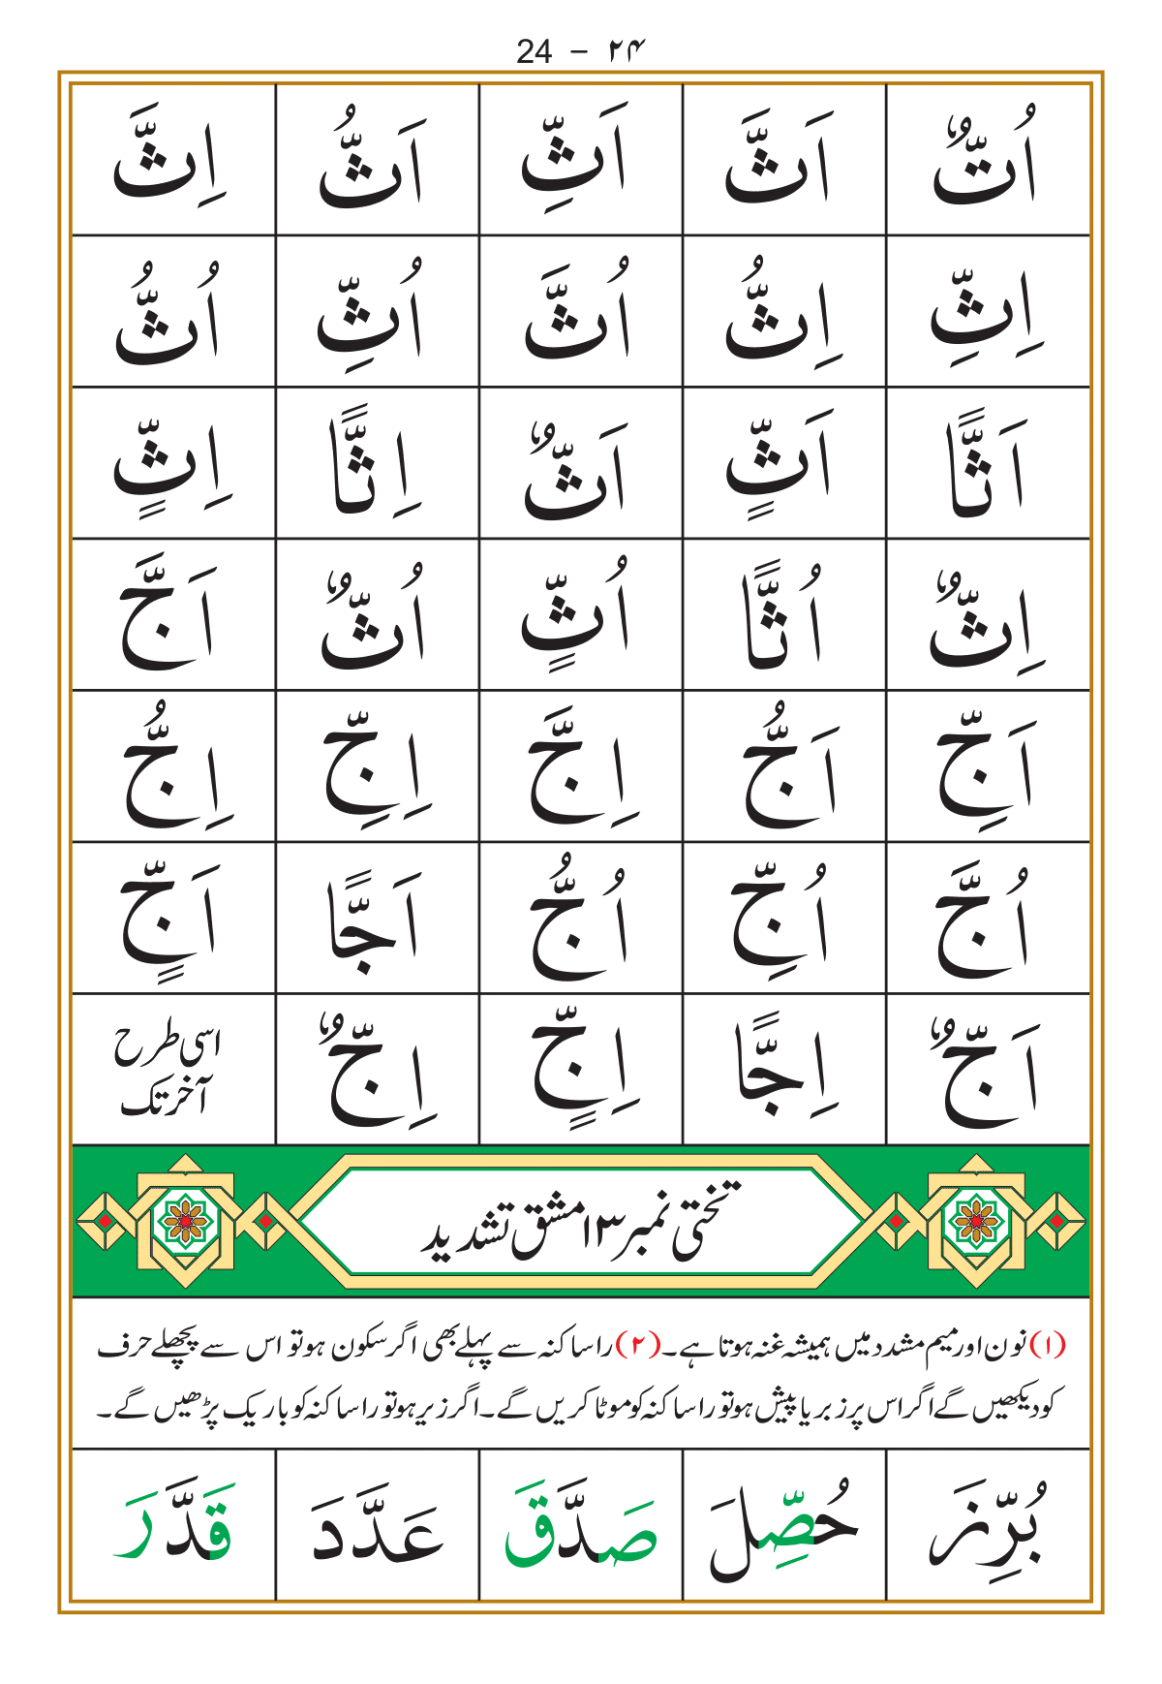 24 – ۲۴
اُتٌّ اَثَّ اَثِّ اَثُّ اِثَّ
اِثِّ اِثُّ اُثَّ اُثِّ اُثُّ
اَثًّا اَثٍّ اَثٌّ اِثًّا اِثٍّ
اِثٌّ اُثًّا اُثٍّ اُثٌّ اَجَّ
اَجِّ اَجُّ اِجَّ اِجِّ اِجُّ
اُجَّ اُجِّ اُجُّ اَجًّا اَجٍّ
اَجٌّ اِجًّا اِجٍّ اِجٌّ اسی طرح
آخر تک
تختی نمبر ۱۳ مشق تشدید
(۱) نون اور میم مشدد میں ہمیشہ غنہ ہوتا ہے۔ (۲) را ساکنہ سے پہلے بھی اگر سکون ہو تو اس سے پچھلے حرف
کو دیکھیں گے اگر اس پر زبر یا پیش ہو تو را ساکنہ کو موٹا کریں گے۔ اگر زیر ہو تو را ساکنہ کو باریک پڑھیں گے۔
بُرِّزَ حُصِّلَ صَدَّقَ عَدَّدَ قَدَّرَ